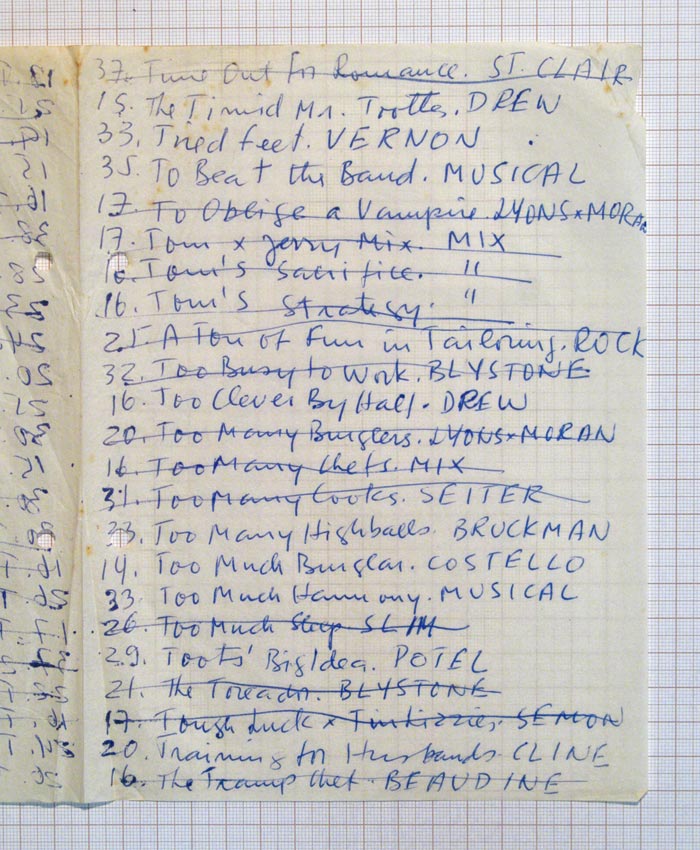 37. Time Out For Romance. ST. CLAIR
15. The Timid Mr. Tootles. DREW
33. Tired feet. VERNON
35. To Beat the Band. MUSICAL
17. To Oblige a Vampire. LYONS x MORAN
17. Tom x Jerry Mix. MIX
16. Tom's Sacrifice. "
16. Tom's Strategy. "
25. A Ton of Fun in Tailoring. ROCK
32. Too Busy to Work. BLYSTONE
16. Too Clever By Half. DREW
20. Too Many Burglers. LYONS x MORAN
16. Too Many Chefs. MIX
31. Too Many Cooks. SEITER
33. Too Many Highballs. BRUCKMAN
14. Too Much Burglar. COSTELLO
33. Too Much Harmony. MUSICAL
26. Too Much Sleep. SLIM
29. Toots' Big Idea. POTEL
21. The Toreador. BLYSTONE
17. Tough Luck x Tin Lizzies. SEMON
20. Training for Husbands. CLINE
16. The Tramp Chef. BEAUDINE